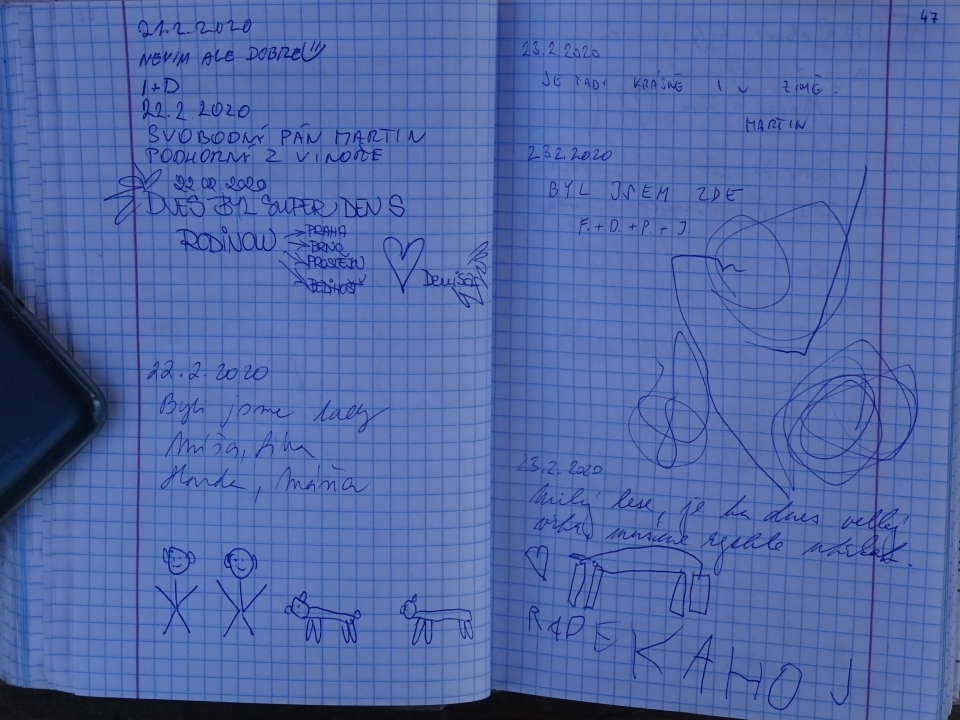 21.2.2020
NEVIM ALE DOBRE
I+D
22.2.2020
SVOBODNÝ PÁN MARTIN
PODHORNÝ Z VINOŘE
22.02.2020
DNES BYL SUPER DEN S
RODINOU
PRAHA
BRNO
PROSTĚJOV
Denisa
22.2.2020
Byli jsme tady
Míša,
, Máňa
47
23.2.2020
JE TADY KRÁSNĚ I V ZIMĚ.
MARTIN
23.2.2020
BYL JSEM ZDE
F. + D. + P. + J
23.2.2020
Milý lese, je tu dnes velký
musíme rychle utíkat.
RADEK AHOJ